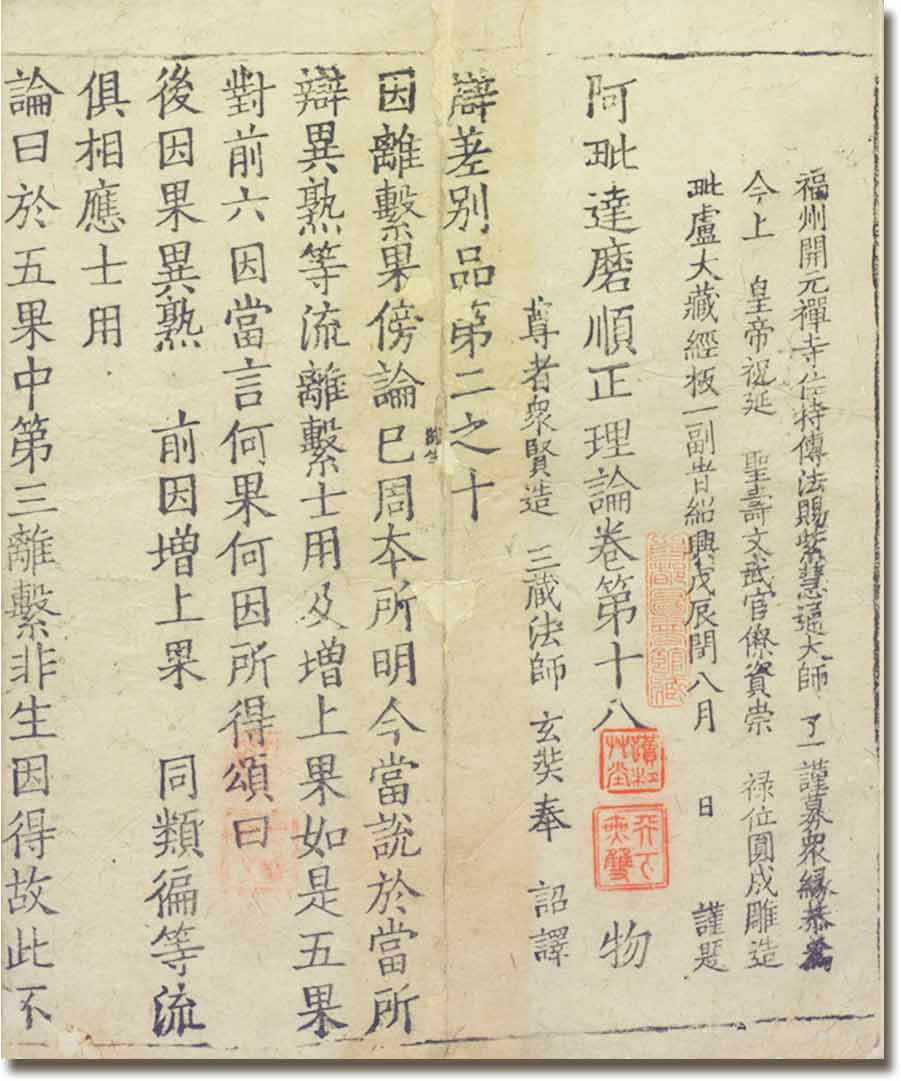 福州開元禪寺住持傳法賜紫慧通大師 了一謹募衆緣恭爲
今上 皇帝祝延 聖壽文武官僚資崇 禄位圓成雕造
毗盧大藏經板一副昔紹興戊辰閏八月 日 謹題
阿毗達磨順正理論卷第十八 物
尊者衆賢造 三藏法師 玄奘奉 詔譯
辯差別品第二之十
因離繫果傍論已周本所明今當說於當所
辯異熟等流離繫士用及增上果如是五果
對前六因當言何果何因所得頌曰
後因果異熟 前因增上果 同類徧等流
俱相應士用
論曰於五果中第三離繫非生因得故此不